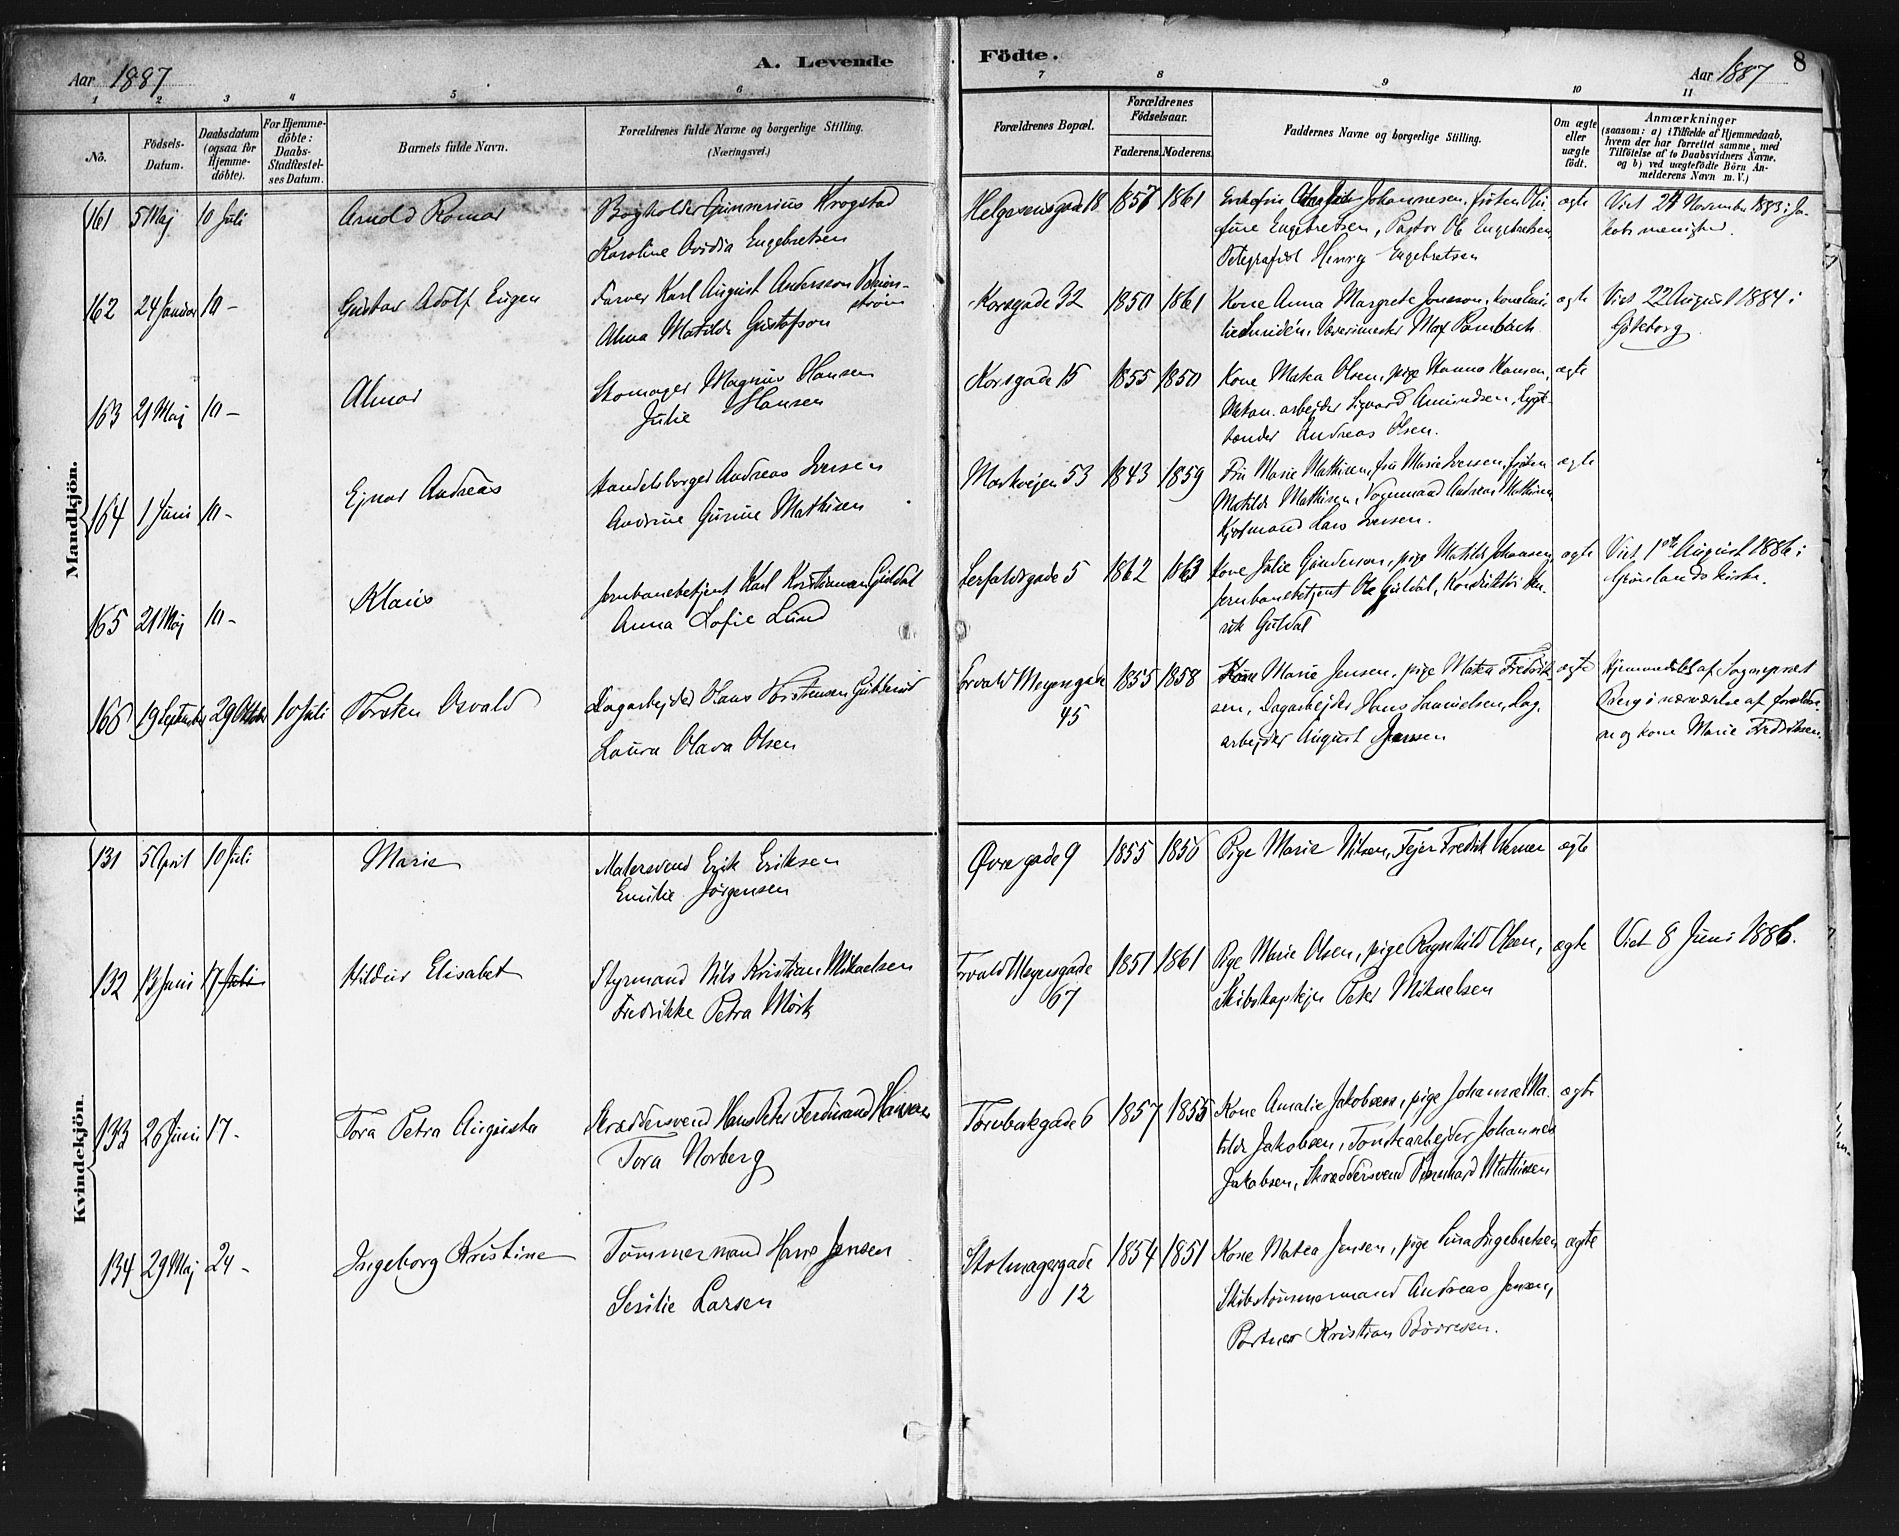 Aar 1887
A. Levende
Födte.
Aar 1887
8
1 2 3 4 5 6 7 8 9 10 11
No.
Födsels-
Datum.
Daabsdatum
(ogsaa for
Hjemme-
döbte).
For Hjemme-
döbte:
Daabs-
Stadfæstel-
ses Datum.
Barnets fulde Navn.
Forældrenes fulde Navne og borgerlige Stilling.
(Næringsvei.)
Forældrenes Bopæl.
Forældrenes
Födselsaar.
Faderens. Moderens.
Faddernes Navne og borgerlige Stilling.
Om ægte
eller
uægte
födt.
Anmærkninger
(saasom: a) i Tilfælde af Hjemmedaab,
hvem der har forrettet samme, med
Tilföielse af to Daabsvidners Navne,
og b) ved uægtefödte Börn An-
melderens Navn m. V.)
Mandkjön.
161 5 Maj 10 Juli Arnold Romar
Bogholder Gunnerius Krogstad
Karoline Ovidia Engebretsen
Helgesensgade 18 1857 1861
Johannesen, frøken Oli-
fine Engebretsen, Pastor Ole Engebretsen,
Telegrafist Henry Engebretsen
ægte
Viet 24 November 1883 i Ja-
kobs menighed.
162 24 Januar 10 - Gustav Adolf Eugen
Farver Karl August Andersson
strøm
Alma Matilda Gustafson
Korsgade 32 1850 1861
Kone Anna Margrete Jonsson, kone Emi-
lie Smidén, Væverimester Max Rambach
ægte
Viet 22 August 1884 i
Göteborg.
163 21 Maj 10 - Almar
Skomager Magnus Hansen
Julie Hansen
Korsgade 15 1855 1850
Kone Matea Olsen, pige Hanna Hansen,
Mekan. arbejder Sigvard Amundsen, Lygt-
tænder Andreas Olsen.
ægte
164 1 Juni 10 - Ejnar Andreas
Handelsborger Andreas Iversen
Andrine Gurine Mathisen
Markvejen 53 1843 1859
Fru Marie Mathisen, fru Marie Iversen, frøken
Matilde Mathisen, Vognmand Andreas Mathisen
Kjøbmand Lars Iversen.
ægte
165 21 Maj 10 - Klaus
Jernbanebetjent Karl Kristian Guldal
Anna Sofie Lund
Lerfaldsgade 5 1862 1863
Kone Julie Gunderson, pige Matilde Johansen,
Jernbanebetjent Ole Guldal, Konduktør Hen-
rik Guldal
ægte
Viet 1ste August 1886 i
Grønlands kirke.
166 19 September 29 Oktober 10 Juli Torsten Osvald
Dagarbejder Olaus Torstensen
Laura Olava Olsen
Torvald Meyersgade
45
1855 1858
Kone Marie Jensen, pige Matea Fredrik-
sen, Dagarbejder Hans Samuelsen, Dag-
arbejder August Jensen
ægte
Hjemmedøbt af Sogneprest
Berg i nærværelse af forældre-
ne og kone Marie Fredriksen.
Kvindekjön.
131 5 April 10 Juli Marie
Malersvend Erik Eriksen
Emilie Jørgensen
Øvregade 9 1855 1856
Pige Marie Nilsen, Fejer Fredrik Werner
ægte
132 13 Juni 17 Juli Hildur Elisabet
Styrmand Nils Kristian Mikaelsen
Fredrikke Petra Mørk
Torvald Meyersgade
67
1851 1861
Pige Marie Olsen, pige Ragnhild Olsen,
Skibskaptejn Peter Mikaelsen
ægte
Viet 8 Juni 1886.
133 26 Juni 17 - Tora Petra Augusta
Skræddersvend Hans Peter Ferdinand Hansen
Tora Norberg
Tørnbakegade 6 1857 1855
Kone Amalie Jakobsen, pige Johanne Ma-
tilde Jakobsen, Tomtearbejder Johannes
Jakobsen, Skræddersvend Bernhard Mathisen
ægte
134 29 Maj 24 - Ingeborg Kristine
Tømmermand Hans Jensen
Sesilie Larsen
Stolmagergade
12
1854 1851
Kone Matea Jensen, pige Lina Ingebretsen,
Skibstømmermand Andreas Jensen,
Portner Kristian Børresen.
ægte